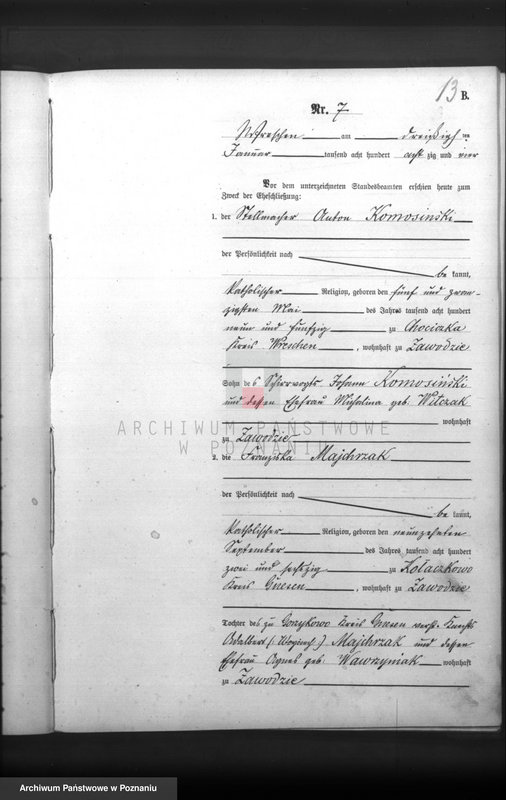 13 B.
Nr. 7
Wreschen am dreißigsten
Januar tausend acht hundert achtzig und vier
Vor dem unterzeichneten Standesbeamten erschien heute zum
Zweck der Eheschließung:
1. der Stellmacher Anton Komosiński
der Persönlichkeit nach
be kannt,
katholischer Religion, geboren den fünf und zwan-
zigsten Mai des Jahres tausend acht hundert
neun und fünfzig zu Chociczka
Kreis Wreschen, wohnhaft zu Zawodzie
Sohn des Schirrvogts Johann Komosiński
und dessen Ehefrau Michalina geb: Witczak
wohnhaft
ARCHIWUM PAŃSTWOWE
W POZNANIU
zu Zawodzie
2. die Franziska Majchrzak
der Persönlichkeit nach
be kannt,
katholischer Religion, geboren den neunzehnten
September des Jahres tausend acht hundert
zwei und sechzig zu Kołaczkowo
Kreis Gnesen, wohnhaft zu Zawodzie
Tochter des zu Gorzykowo Kreis Gnesen verst. Knechts
Adalbert (: Wojciech :) Majchrzak und dessen
Ehefrau Agnes geb: Wawrzyniak wohnhaft
zu Zawodzie
Archiwum Państwowe w Poznaniu